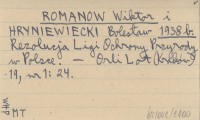 ROMANOW Wiktor i
HRYNIEWIECKI Bolesław 1938 b.
Rezolucja Ligi Ochrony Przyrody
w Polsce. — Orli Lot (Kraków)
19, nr 1: 24.
MT